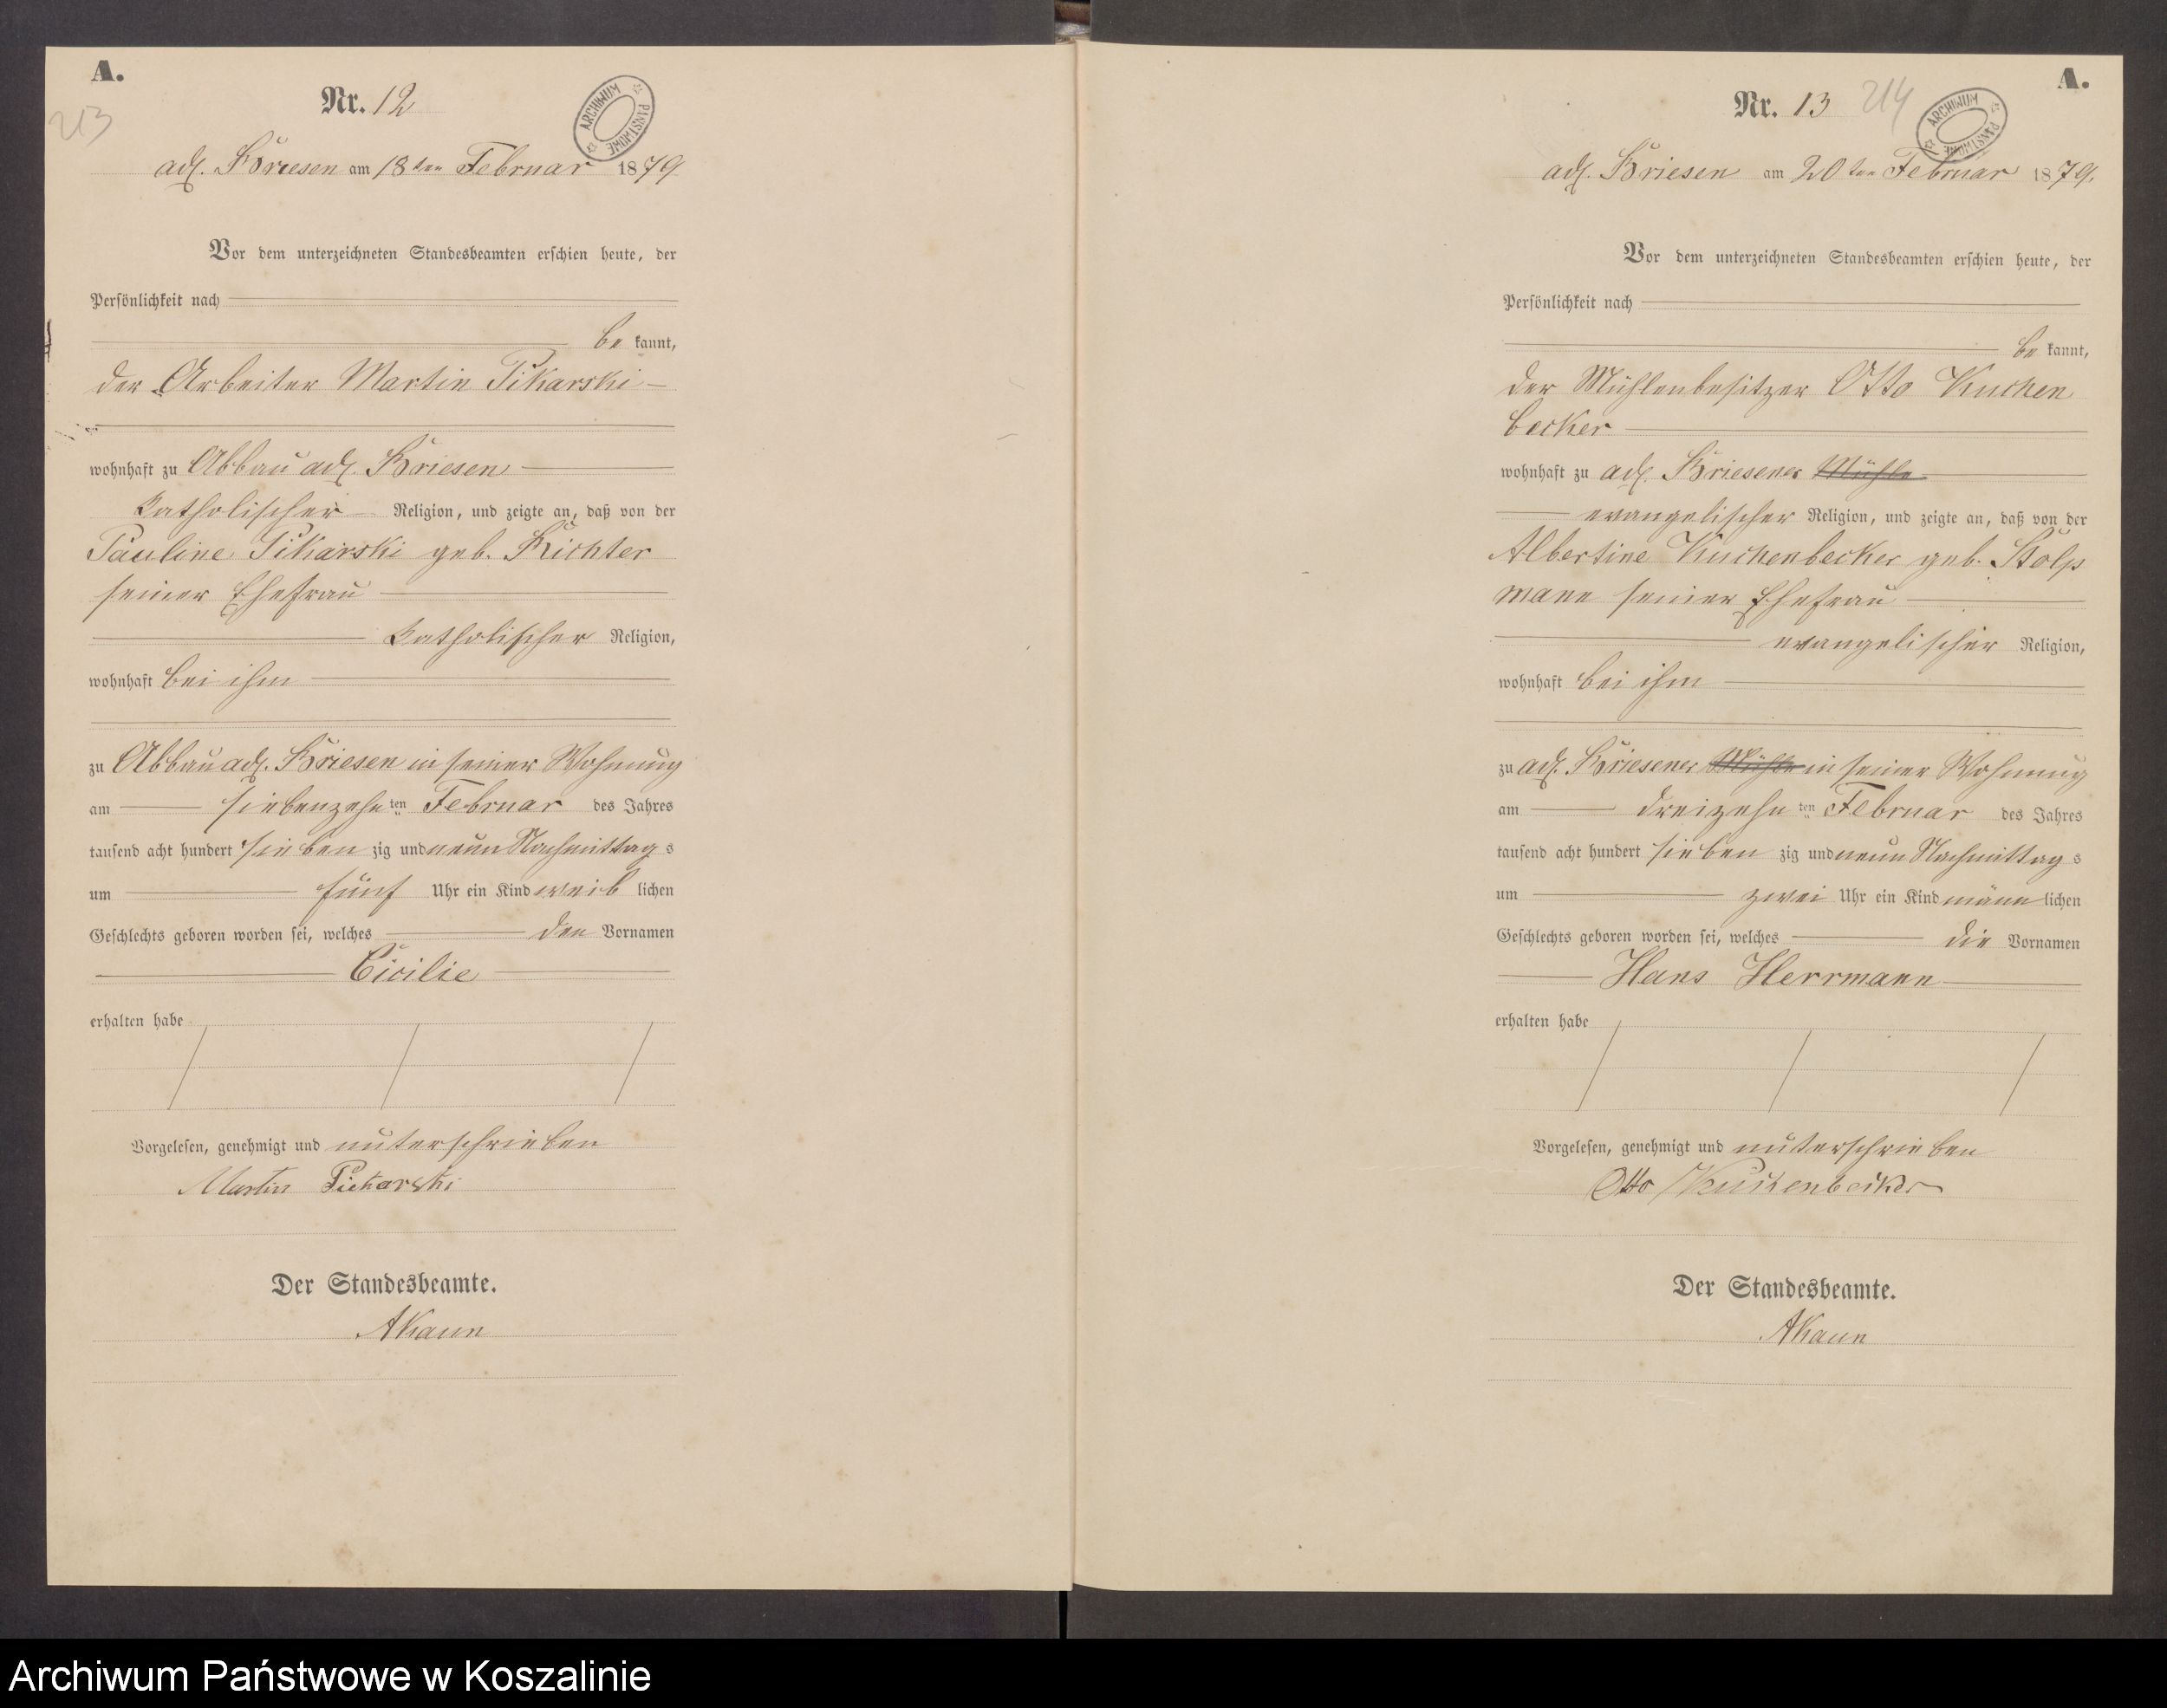 A.
213
Nr. 12
ARCHIWUM PAŃSTWOWE
adl. Briesen am 18ten Februar 1879
Vor dem unterzeichneten Standesbeamten erschien heute, der
Persönlichkeit nach
be kannt,
der Arbeiter Martin Pikarski
wohnhaft zu Abbau adl. Briesen
katholischer Religion, und zeigte an, daß von der
Pauline Pikarski geb. Richter
seiner Ehefrau
katholischer Religion,
wohnhaft bei ihm
zu Abbau adl. Briesen in seiner Wohnung
am siebenzehn ten Februar des Jahres
tausend acht hundert sieben zig und neun Nachmittag s
um fünf Uhr ein Kind weib lichen
Geschlechts geboren worden sei, welches den Vornamen
Cicilie
erhalten habe
Vorgelesen, genehmigt und unterschrieben
Martin Piekarski
Der Standesbeamte.
AKaun
A.
Nr. 13
214
ARCHIWUM PAŃSTWOWE
adl. Briesen am 20ten Februar 1879.
Vor dem unterzeichneten Standesbeamten erschien heute, der
Persönlichkeit nach
be kannt,
der Mühlenbesitzer Otto Kuchen
becker
wohnhaft zu adl. Briesener Mühle
evangelischer Religion, und zeigte an, daß von der
Albertine Kuchenbecker geb. Stolp
mann seiner Ehefrau
evangelischer Religion,
wohnhaft bei ihm
zu adl. Briesener Mühle in seiner Wohnung
am dreizehn ten Februar des Jahres
tausend acht hundert sieben zig und neun Nachmittag s
um zwei Uhr ein Kind männ lichen
Geschlechts geboren worden sei, welches die Vornamen
Hans Herrmann
erhalten habe
Vorgelesen, genehmigt und unterschrieben
Otto Kuchenbecker
Der Standesbeamte.
AKaun
Archiwum Państwowe w Koszalinie